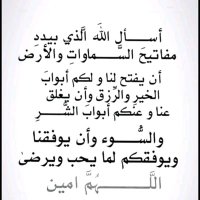 أســأل اللَّه الَّذي بيدهِ
مفاتيحَ السَّــماواتِ والأرض
أن يفتح لنا و لكم أبوابَ
الخيرِ والرِّزق وأن يغلق
عنا و عنكم أبوابَ الشَّرِ
والسُّوء وأن يوفقنا
ويوفقكم لما يحب ويرضى
اللَّـــــهُمَّ امين